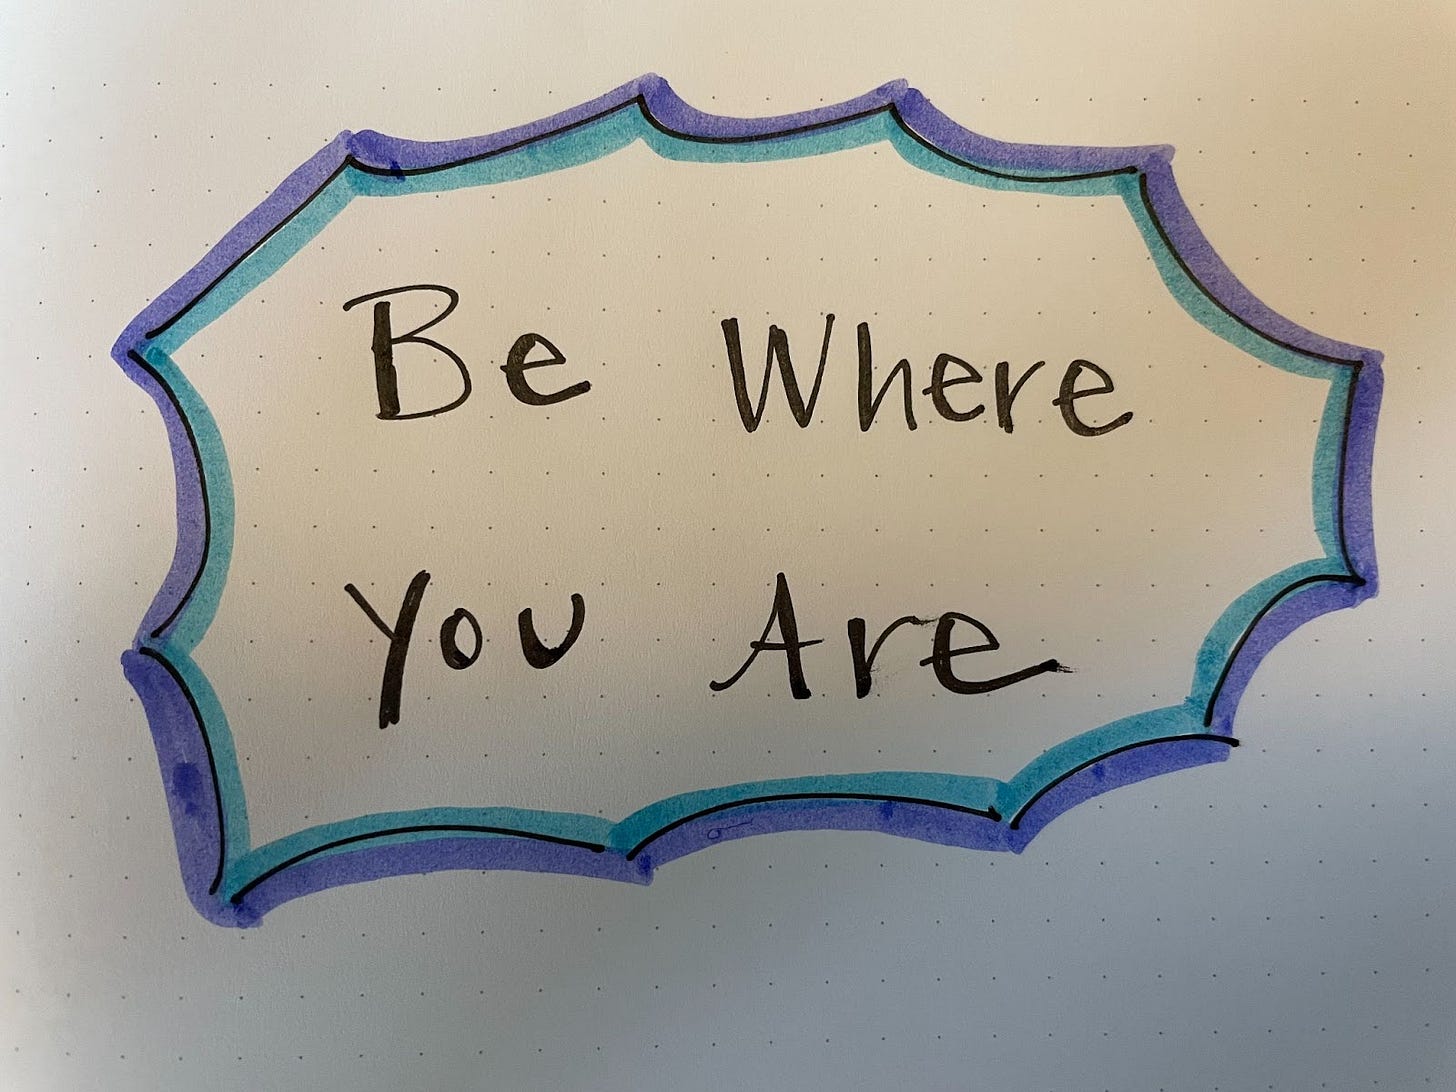 Be Where
You Are